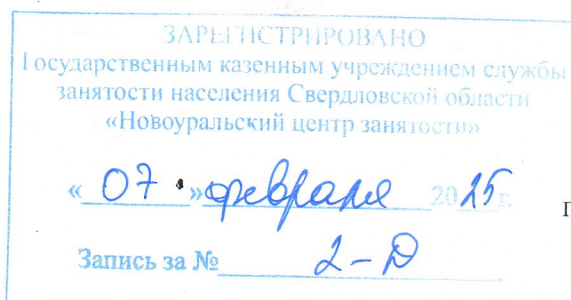 ЗАРЕГИСТРИРОВАНО
Государственным казенным учреждением службы
занятости населения Свердловской области
«Новоуральский центр занятости»
«07» февраля 2025г.
Запись за № 2-D